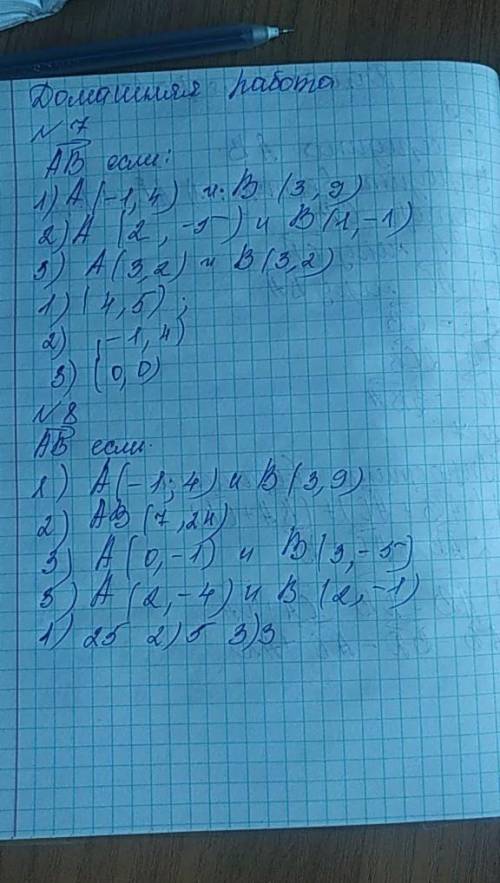 Домашняя работа
№ 7
AB если:
1) A (-1, 4) и B (3, 9)
2) A (2, -5) и B (1, -1)
3) A (3, 2) и B (3, 2)
1) (4, 5);
2) (-1, 4)
3) (0, 0)
№ 8
AB если.
1) A (-1; 4) и B (3, 9)
2) AB (7, 24)
3) A (0, -1) и B (3, -5)
3) A (2, -4) и B (2, -1)
1) 25 2) 5 3) 3